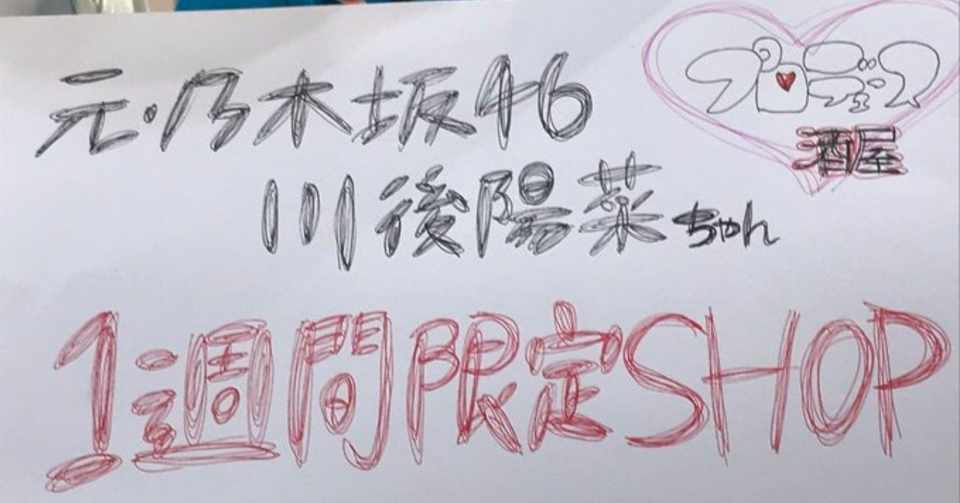 元・乃木坂46
プロデュス
酒屋
川後陽菜ちゃん
1週間限定SHOP